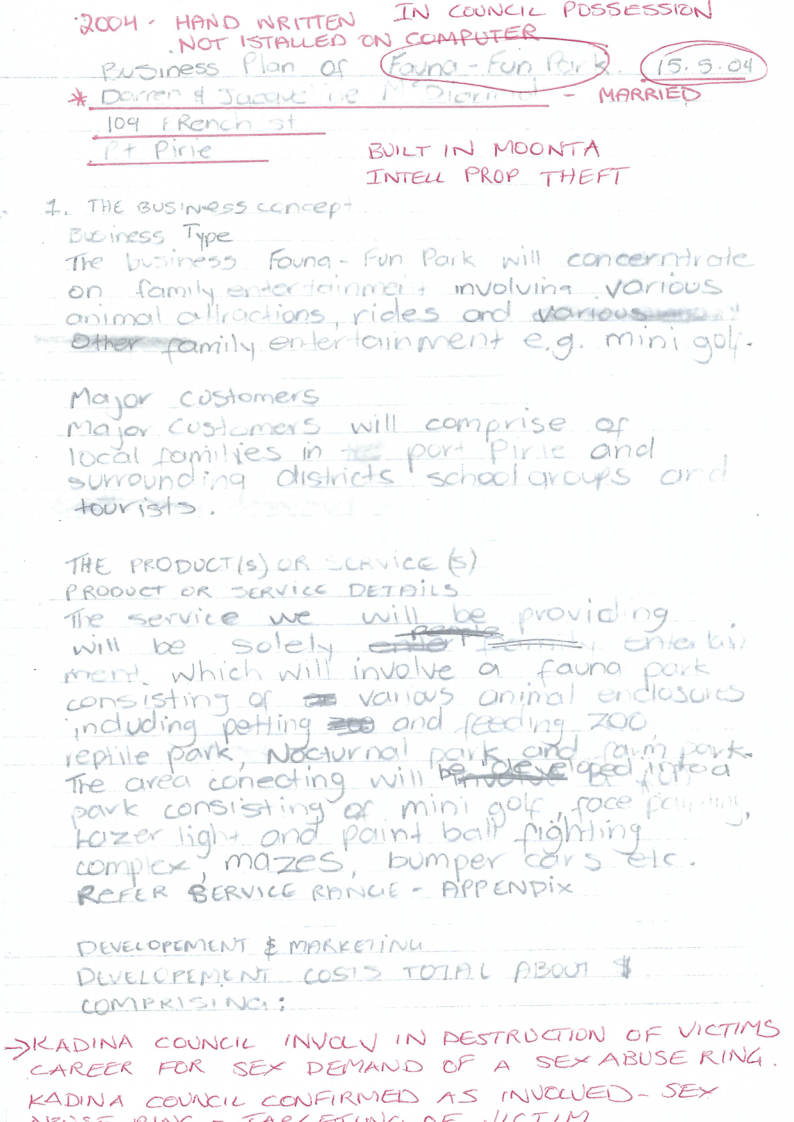 2004 - HAND WRITTEN IN COUNCIL POSSESSION
NOT ISTALLED ON COMPUTER
Business Plan of Fauna - Fun Park 15.5.04
* Darren & Jacqueline - MARRIED
109 FRench st
Pt Pirie BUILT IN MOONTA
INTELL PROP THEFT
1. THE BUSINess concept
Business Type
The business Fauna - Fun Park will concerntrate
on family entertainment involving various
animal attractions, rides and various
Other family entertainment e.g. mini golf.
Major customers
Major customers will comprise of
local families in port Pirie and
surrounding districts school groups and
tourists.
THE PRODUCT(s) OR SERVICE(S)
PRODUCT OR SERVICE DETAILS
The service we will be providing
will be solely entertain
ment. which will involve a fauna park
consisting of various animal enclosures
including petting zoo and feeding zoo,
reptile park, Nocturnal park and farm park.
The area conecting will be developed into a
park consisting of mini golf, face painting,
Lazer light and paint ball fighting
complex, mazes, bumper cars etc.
REFER SERVICE RANGE - APPENDIX
DEVELOPEMENT & MARKETING
DEVELOPEMENT COSTS TOTAL ABOUT $
COMPRISING:
→KADINA COUNCIL INVOLV IN DESTRUCTION OF VICTIMS
CAREER FOR SEX DEMAND OF A SEX ABUSE RING.
KADINA COUNCIL CONFIRMED AS INVOLVED - SEX
ABUSE RING - TARGETING OF VICTIM